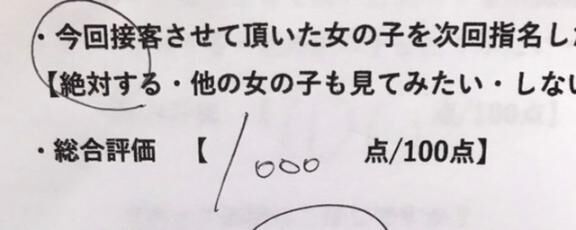 ・今回接客させて頂いた女の子を次回指名し
【絶対する・他の女の子も見てみたい・しない
・総合評価　【 1000 点/100点】